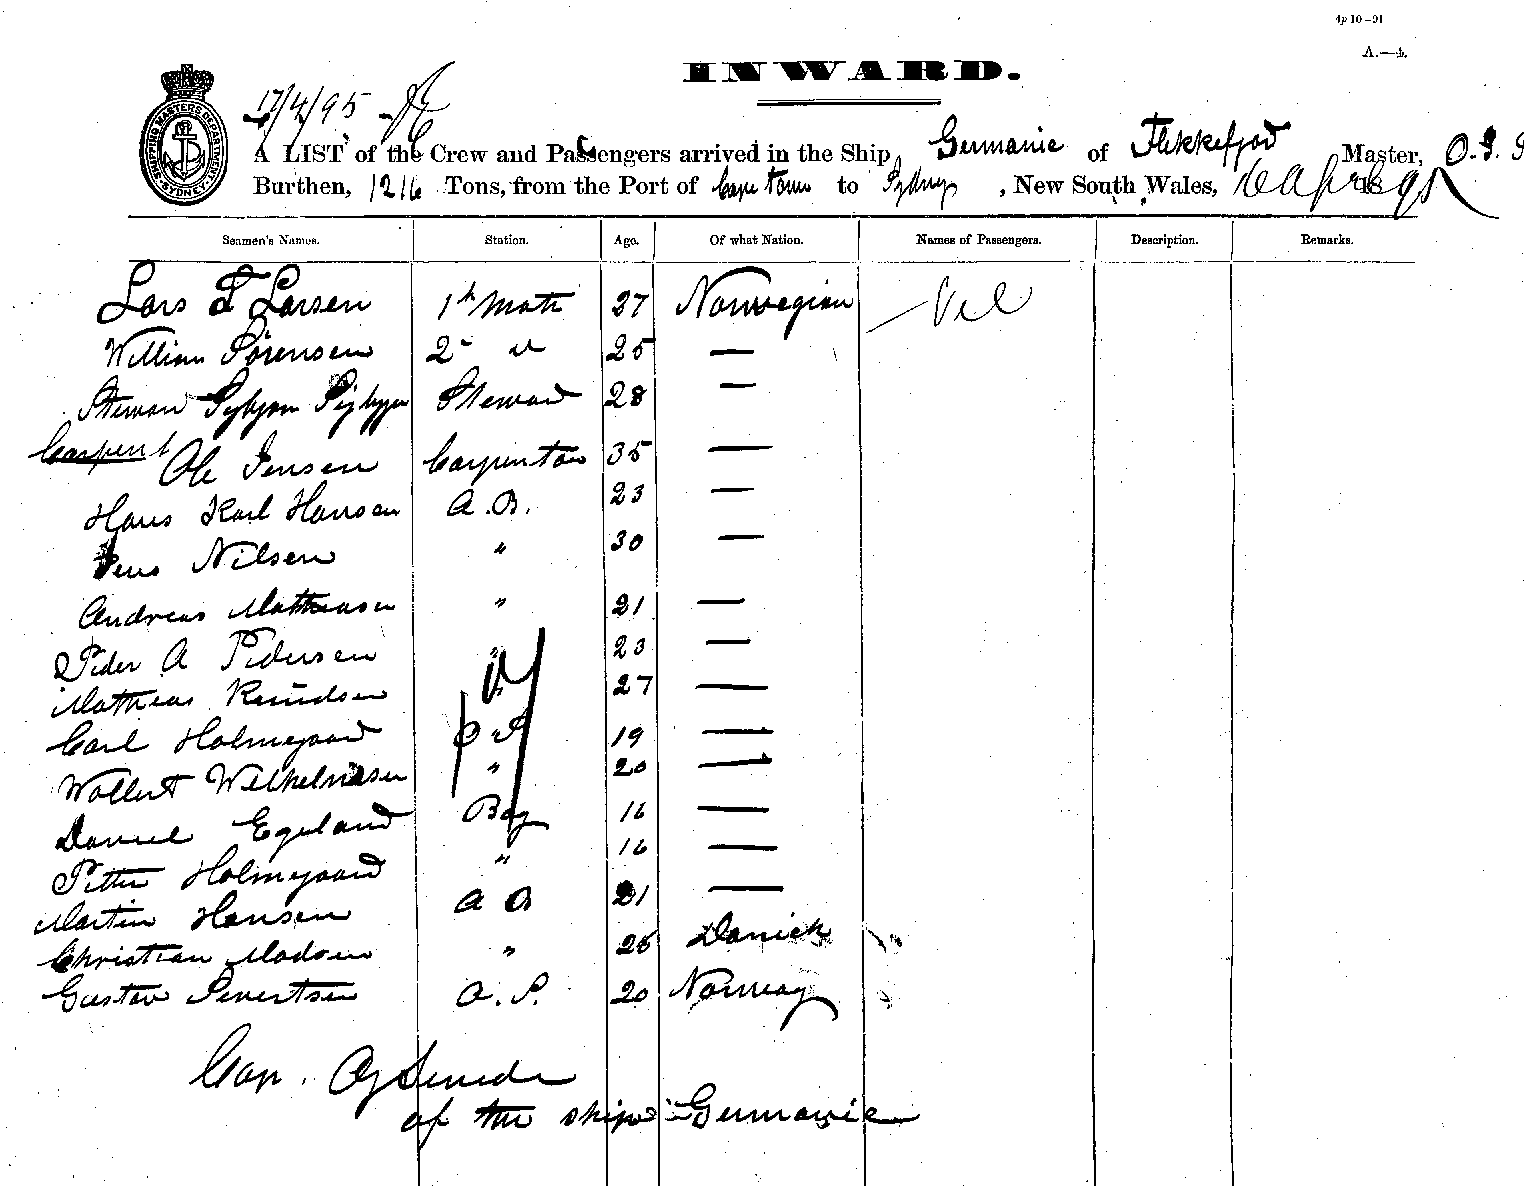 4p 10–91
A.—4.
INWARD.
17/4/95
SHIPPING MASTERS DEPARTMENT SYDNEY
A LIST of the Crew and Passengers arrived in the Ship, Germanic of Flekkefjord Master, O.
Burthen, 1216 Tons, from the Port of Cape Town to Sydney, New South Wales,
Seamen's Names. Station. Age. Of what Nation. Names of Passengers. Description. Remarks.
Lars T Larsen 1st Mate 27 Norwegian Nil
William Sörensen 2 " 25 —
Steward Steward 28 —
Carpent Ole Jensen Carpenter 35 —
Hans Karl Hansen A.B. 23 —
Jens Nilsen " 30 —
Andreas Mathiasen " 21 —
Peder A Pedersen " 23 —
Mathias Knudsen 27 —
Carl Holmegaard 19 —
Wollert Wilhelmsen " 20 —
Daniel Egeland Boy 16 —
Petter Holmegaard " 16 —
Martin Hansen A B 21 —
Christian Madsen " 26 Danish
Gustav Sivertsen O.S. 20 Norway
Cap.
of the ship Germanic